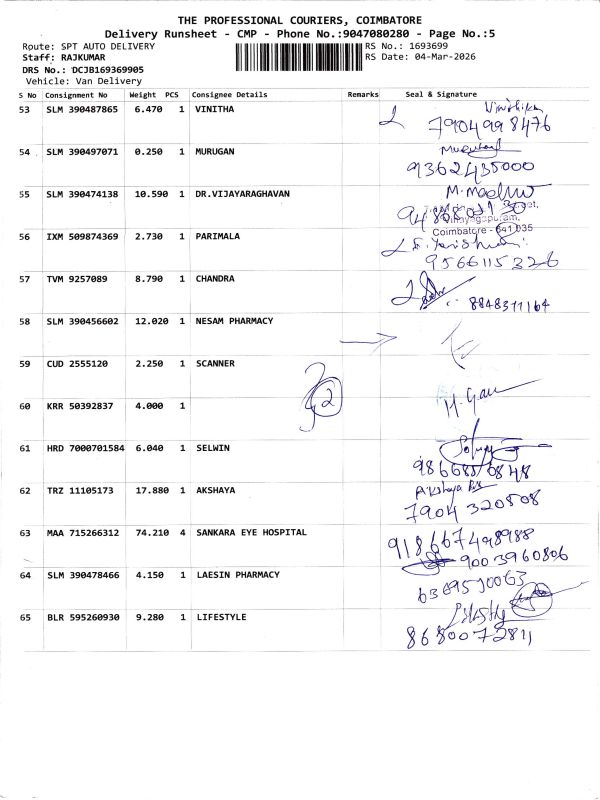 THE PROFESSIONAL COURIERS, COIMBATORE
Delivery Runsheet - CMP - Phone No.:9047080280 - Page No.:5
Route: SPT AUTO DELIVERY RS No.: 1693699
Staff: RAJKUMAR RS Date: 04-Mar-2026
DRS No.: DCJB169369905
Vehicle: Van Delivery
S No Consignment No Weight PCS Consignee Details Remarks Seal & Signature
53 SLM 390487865 6.470 1 VINITHA
7904998476
54 SLM 390497071 0.250 1 MURUGAN
9362435000
55 SLM 390474138 10.590 1 DR.VIJAYARAGHAVAN M. Madhu
Coimbatore - 641 035
56 IXM 509874369 2.730 1 PARIMALA
9566115326
57 TVM 9257089 8.790 1 CHANDRA
8848371164
58 SLM 390456602 12.020 1 NESAM PHARMACY
59 CUD 2555120 2.250 1 SCANNER
60 KRR 50392837 4.000 1
61 HRD 7000701584 6.040 1 SELWIN
62 TRZ 11105173 17.880 1 AKSHAYA Akshaya
7904320508
63 MAA 715266312 74.210 4 SANKARA EYE HOSPITAL 918667498988
9003960806
64 SLM 390478466 4.150 1 LAESIN PHARMACY
65 BLR 595260930 9.280 1 LIFESTYLE
8680072811